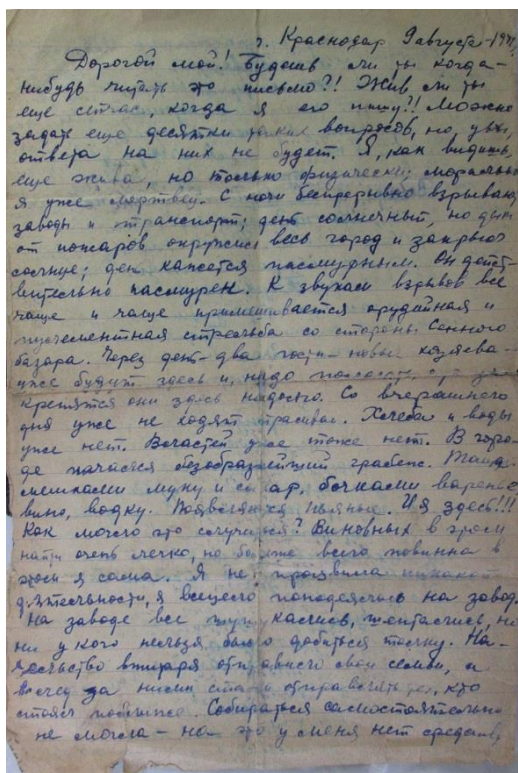 г. Краснодар 9 августа - 194
Дорогой мой! Будешь ли ты когда-
нибудь читать это письмо?! Жив ли ты
еще сейчас, когда я его пишу?! Можно
задать еще десятки таких вопросов, но, увы,
ответа на них не будет. Я, как видишь,
еще жива, но только физически; морально
я уже мертвец. С ночи беспрерывно взрывают
заводы и транспорт; день солнечный, но дым
от пожаров окружил весь город и закрыл
солнце; день кажется пасмурным. Он дейст-
вительно пасмурен. К звукам взрывов все
чаще и чаще примешивается орудийная и
пулеметная стрельба со стороны Сенного
базара. Через день-два гости - новые хозяева -
уже будут здесь и, надо полагать,
крепятся они здесь надолго. Со вчерашнего
дня уже не ходят трамваи. Хлеба и воды
уже нет. Властей уже тоже нет. В горо-
де начался безобразнейший грабеж. Тащат
мешками муку и сахар, бочками варенье,
вино, водку. Появляются пьяные. И я здесь!!!
Как могло это случиться? Виновных в этом
найти очень легко, но больше всего повинна в
этом я сама. Я не проявила никакой
деятельности, я всецело понадеялась на завод.
На заводе все шушукались, шептались, но
ни у кого нельзя было добиться толку. На-
чальство втихаря отправило свои семьи, а
вслед за ними стали отправлять тех, кто
стоял повыше. Собираться самостоятельно
не могла - на это у меня нет средств,